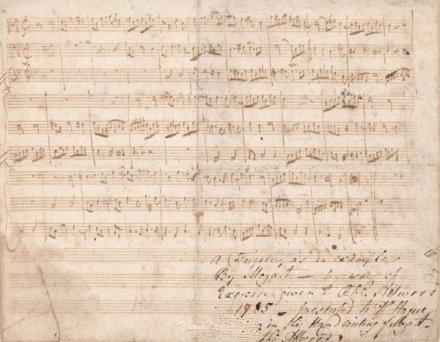 A Fugue as an example
By Mozart — by way of
Exercise given to Attwood
1785 — presented to Dr Hague
in the Hand writing of Mozart